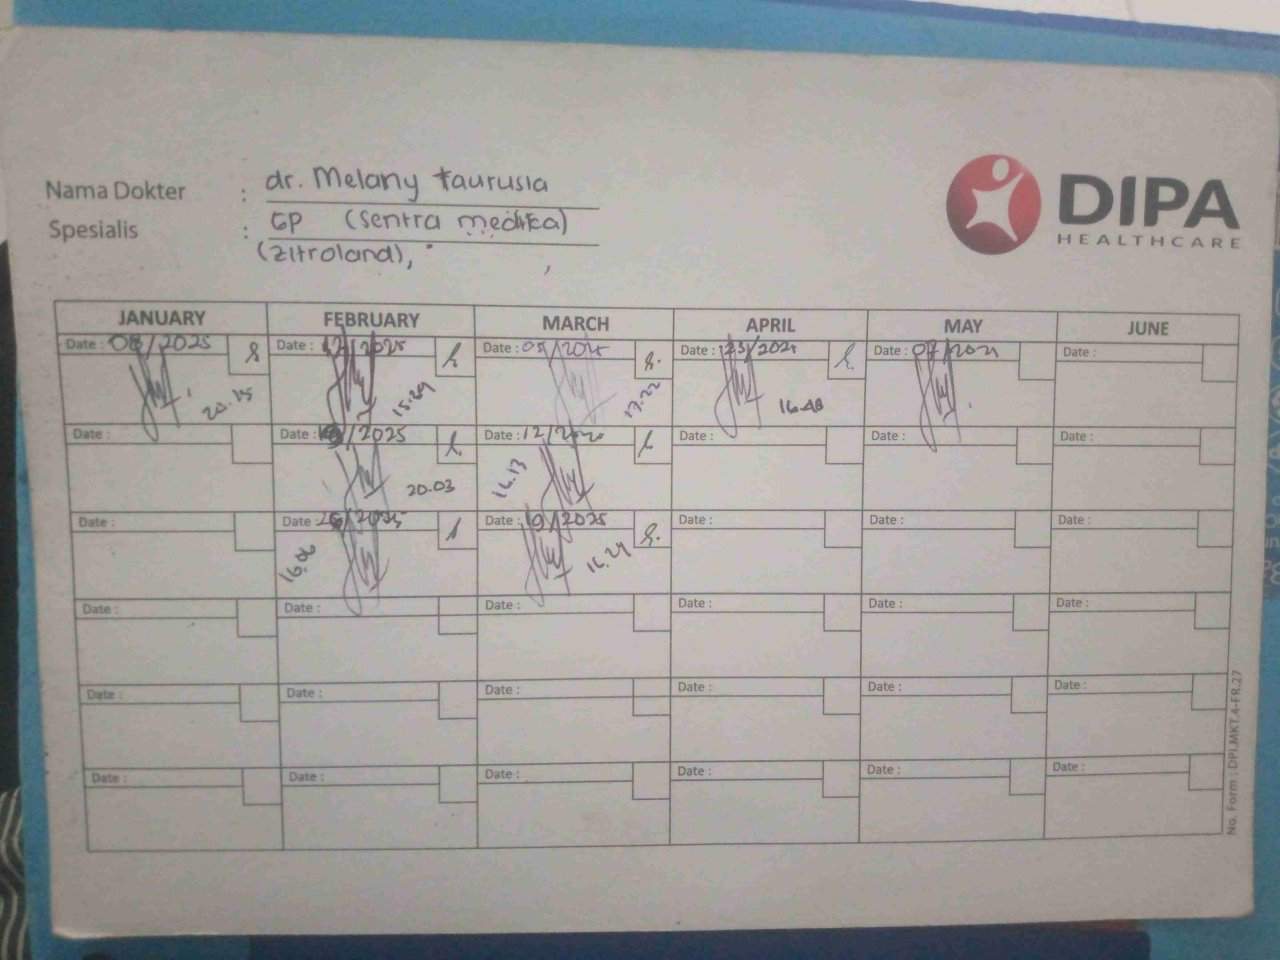 Nama Dokter : dr. Melany Taurusia
Spesialis : GP (Sentra medika)
(Zitroland),
DIPA
HEALTHCARE
JANUARY FEBRUARY MARCH APRIL MAY JUNE
Date : 08/2025 Date : 12/2025 Date : 05/2025 Date : 23/2025 Date : 07/2025 Date :
20.15 15.29 17.22 16.48
Date : Date : /2025 Date : 12/2025 Date : Date : Date :
20.03 16.13
Date : Date : 26/2025 Date : 19/2025 Date : Date : Date :
16.06 16.29
Date : Date : Date : Date : Date : Date :
Date : Date : Date : Date : Date : Date :
Date : Date : Date : Date : Date : Date :
No. Form : DPI.MKT.4-FR.27